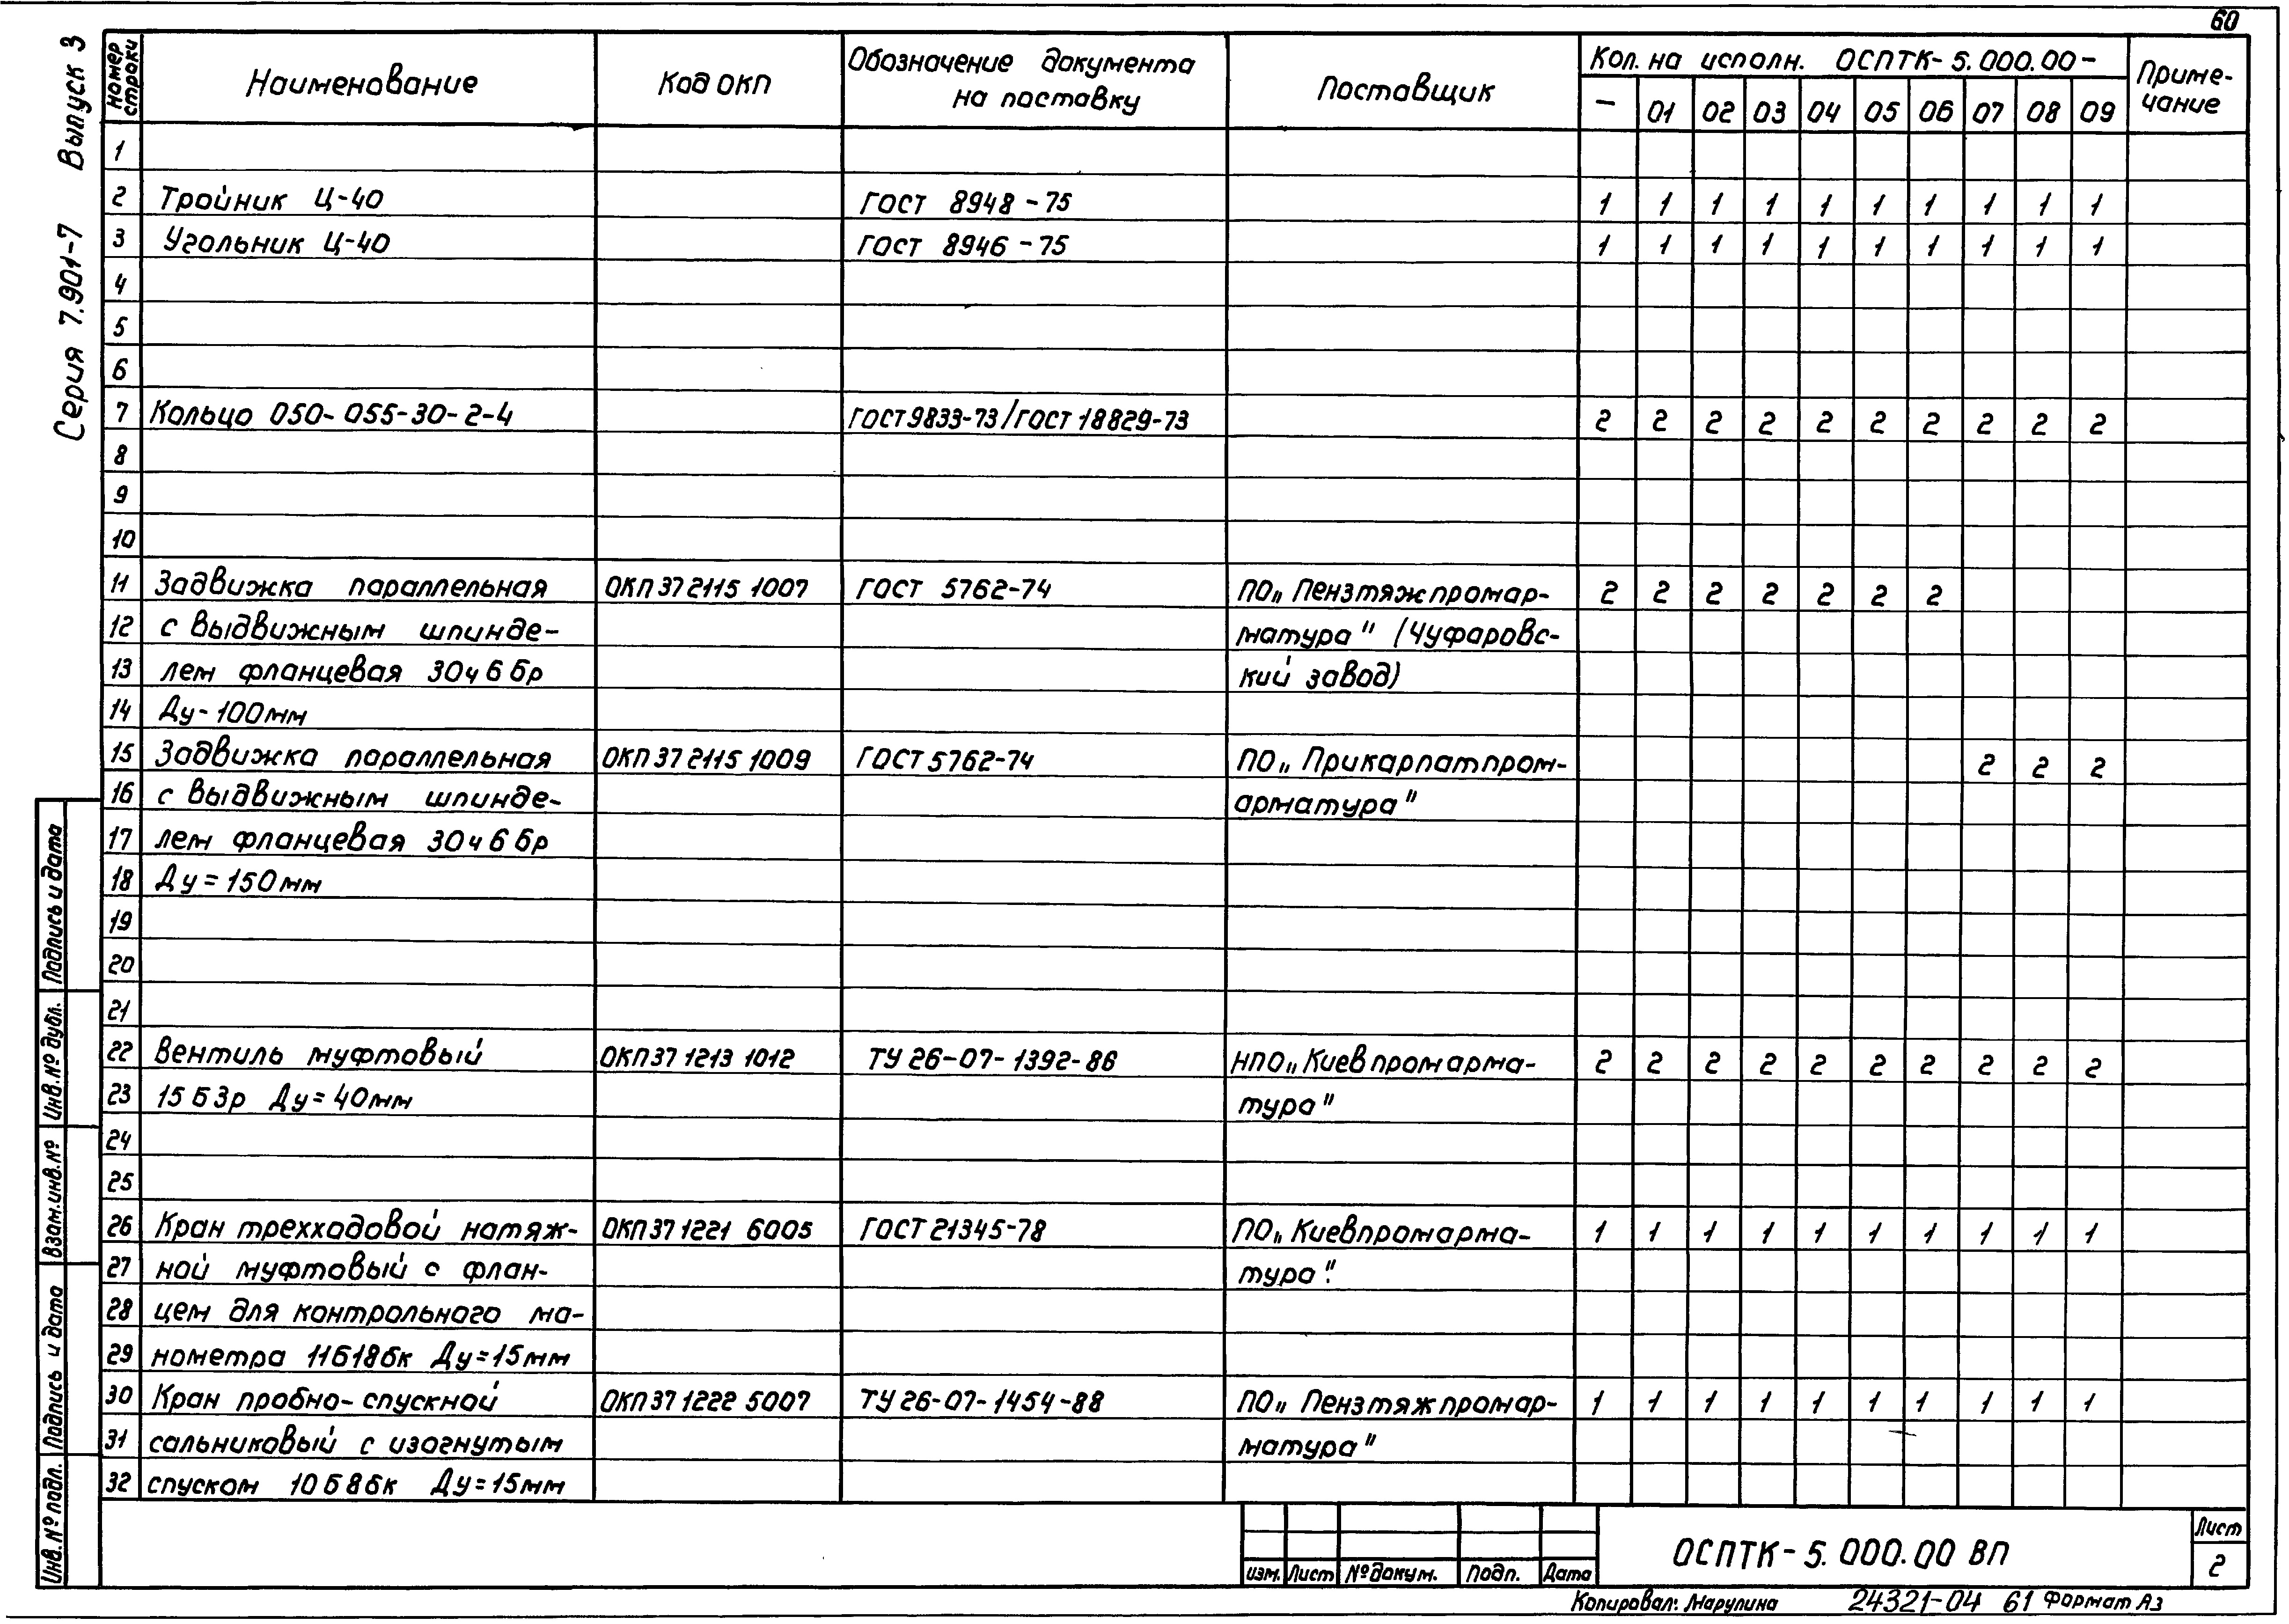 60
Серия 7.901-7 Выпуск 3
Номер строки Наименование Код ОКП Обозначение документа на поставку Поставщик Кол. на исполн. ОСПТК-5.000.00- Приме-чание
- 01 02 03 04 05 06 07 08 09
1
2 Тройник Ц-40 ГОСТ 8948-75 1 1 1 1 1 1 1 1 1 1
3 Угольник Ц-40 ГОСТ 8946-75 1 1 1 1 1 1 1 1 1 1
4
5
6
7 Кольцо 050-055-30-2-4 ГОСТ 9833-73/ГОСТ 18829-73 2 2 2 2 2 2 2 2 2 2
8
9
10
11 Задвижка параллельная ОКП 37 2115 1007 ГОСТ 5762-74 ПО„Пензтяжпромар- 2 2 2 2 2 2 2
12 с выдвижным шпинде- матура" (Чуфаровс-
13 лем фланцевая 30ч6бр кий завод)
14 Ду-100мм
15 Задвижка параллельная ОКП 37 2115 1009 ГОСТ 5762-74 ПО„Прикарпатпром- 2 2 2
16 с выдвижным шпинде- арматура"
17 лем фланцевая 30ч6бр
18 Ду=150мм
19
20
21
22 Вентиль муфтовый ОКП 37 1213 1012 ТУ 26-07-1392-86 НПО„Киевпромарма- 2 2 2 2 2 2 2 2 2 2
23 15Б3р Ду=40мм тура"
24
25
26 Кран трехходовой натяж- ОКП 37 1221 6005 ГОСТ 21345-78 ПО„Киевпромарма- 1 1 1 1 1 1 1 1 1 1
27 ной муфтовый с флан- тура".
28 цем для контрольного ма-
29 нометра 11Б18бк Ду=15мм
30 Кран пробно-спускной ОКП 37 1222 5007 ТУ 26-07-1454-88 ПО„Пензтяжпромар- 1 1 1 1 1 1 1 1 1 1
31 сальниковый с изогнутым матура"
32 спуском 10Б8бк Ду=15мм
Инв.№подл. Подпись и дата Взам.инв.№ Инв.№дубл. Подпись и дата
Изм. Лист №докум. Подп. Дата
ОСПТК-5.000.00 ВП
Лист
2
Копировал: Марулина 24321-04 61 Формат А3